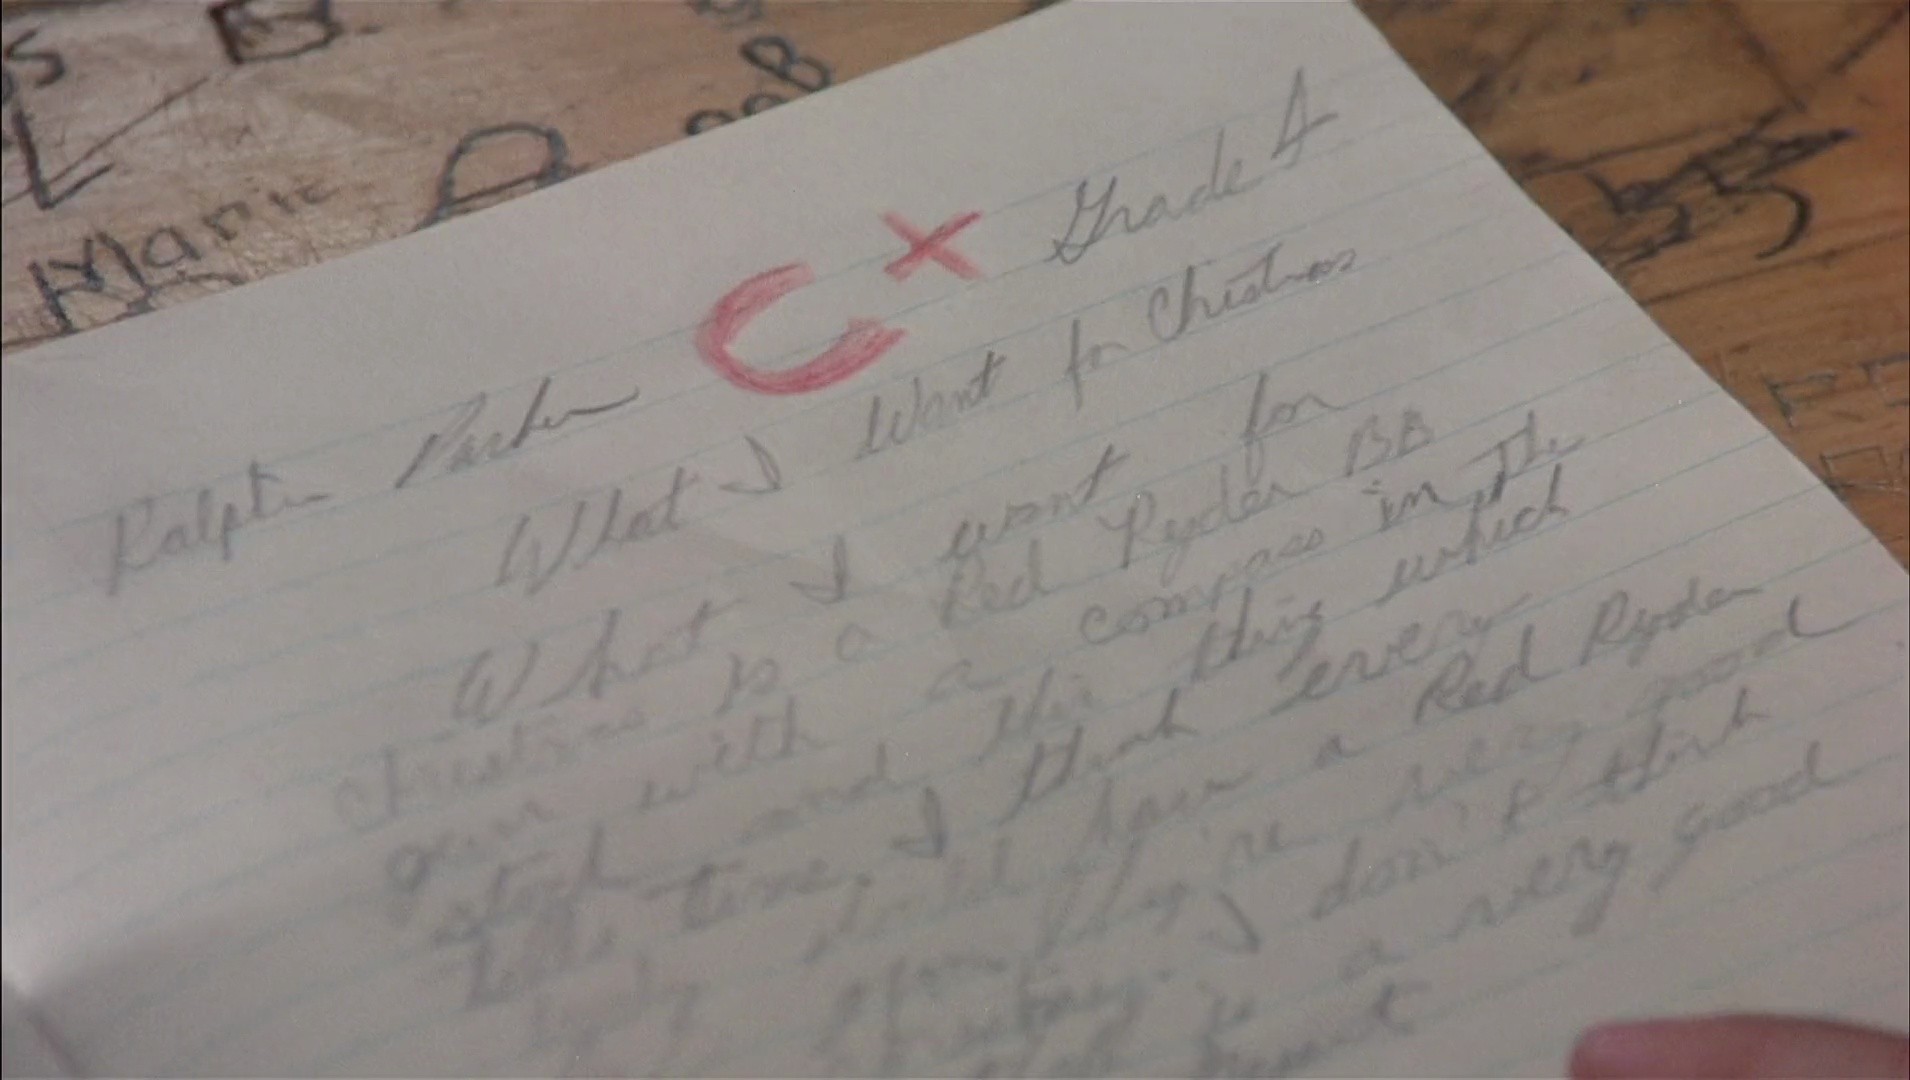 Marie
BOB
C+
Grade 4
Ralphie Parker
What I Want for Christmas
What I want for
Christmas is a Red Ryder BB
gun with a compass in the
stock and this thing which
tells time. I think every
body should have a Red Ryder
They're very good
for Christmas. I don't think
is a very good
present